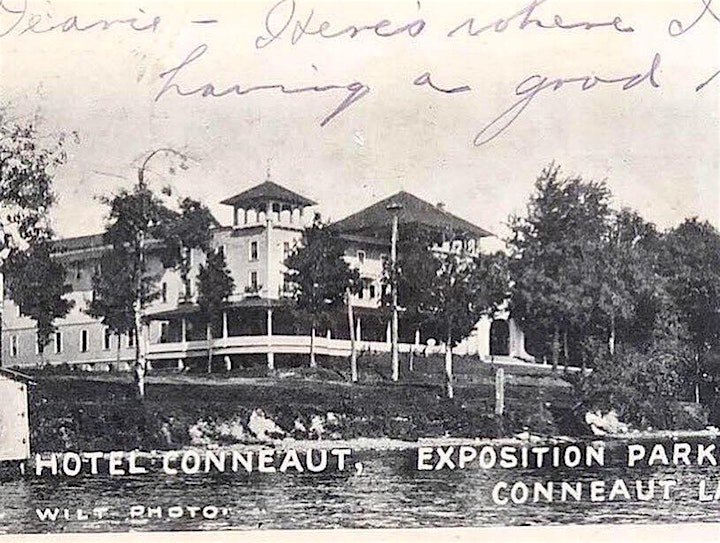 Dearie – Here's where I
having a good
HOTEL CONNEAUT, EXPOSITION PARK
CONNEAUT LA
WILT PHOTO.